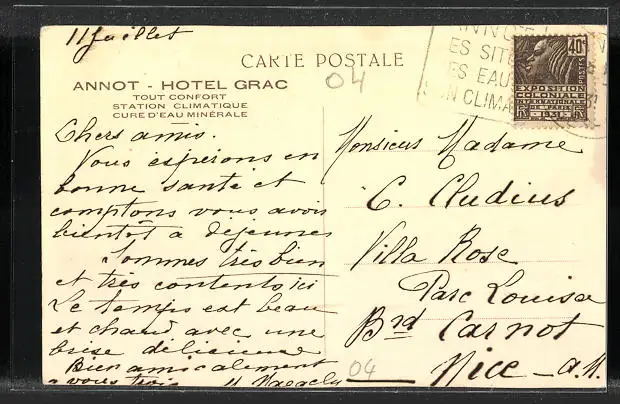 11 Juillet
CARTE POSTALE
ANNOT - HOTEL GRAC
TOUT CONFORT
STATION CLIMATIQUE
CURE D'EAU MINÉRALE
04
Chers amis.
Vous espérons en
bonne santé et
comptons vous avoir
bientôt à déjeuner
Sommes très bien
et très contents ici
Le temps est beau
et chaud avec une
brise délicieuse
Bien amicalement
à vous trois
ANNOT
ES SIT
ES EAU
SON CLIMA
40c
POSTES
EXPOSITION
COLONIALE
INTERNATIONALE
DE PARIS
1931
Monsieur Madame
C. Cludius
Villa Rose
Parc Louisa
Brd Carnot
Nice - A.M.
04